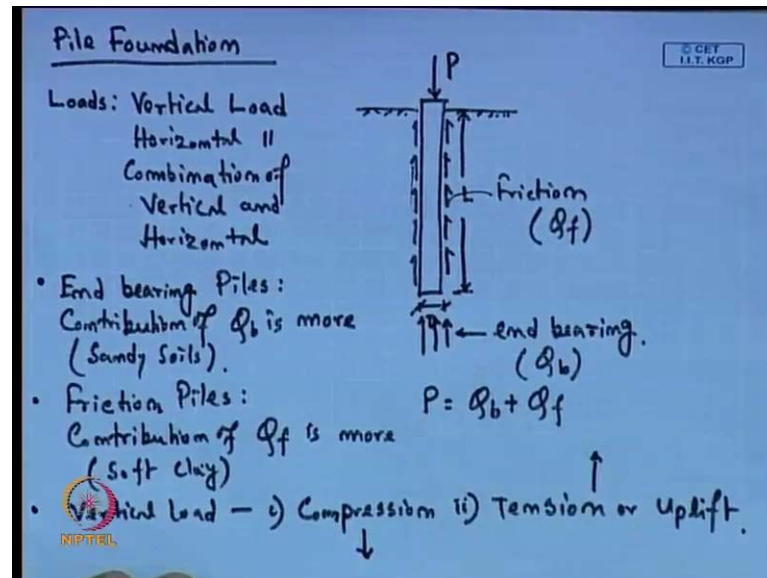 Pile Foundation
© CET
I.I.T. KGP
P
Loads: Vertical Load
Horizontal 11
Combination of
Vertical and
Horizontal
Friction
(Qf)
• End bearing Piles:
Contribution of Qb is more
(Sandy Soils).
end bearing.
(Qb)
P = Qb + Qf
• Friction Piles:
Contribution of Qf is more
(Soft Clay)
• Vertical Load — i) Compression ii) Tension or Uplift.
NPTEL